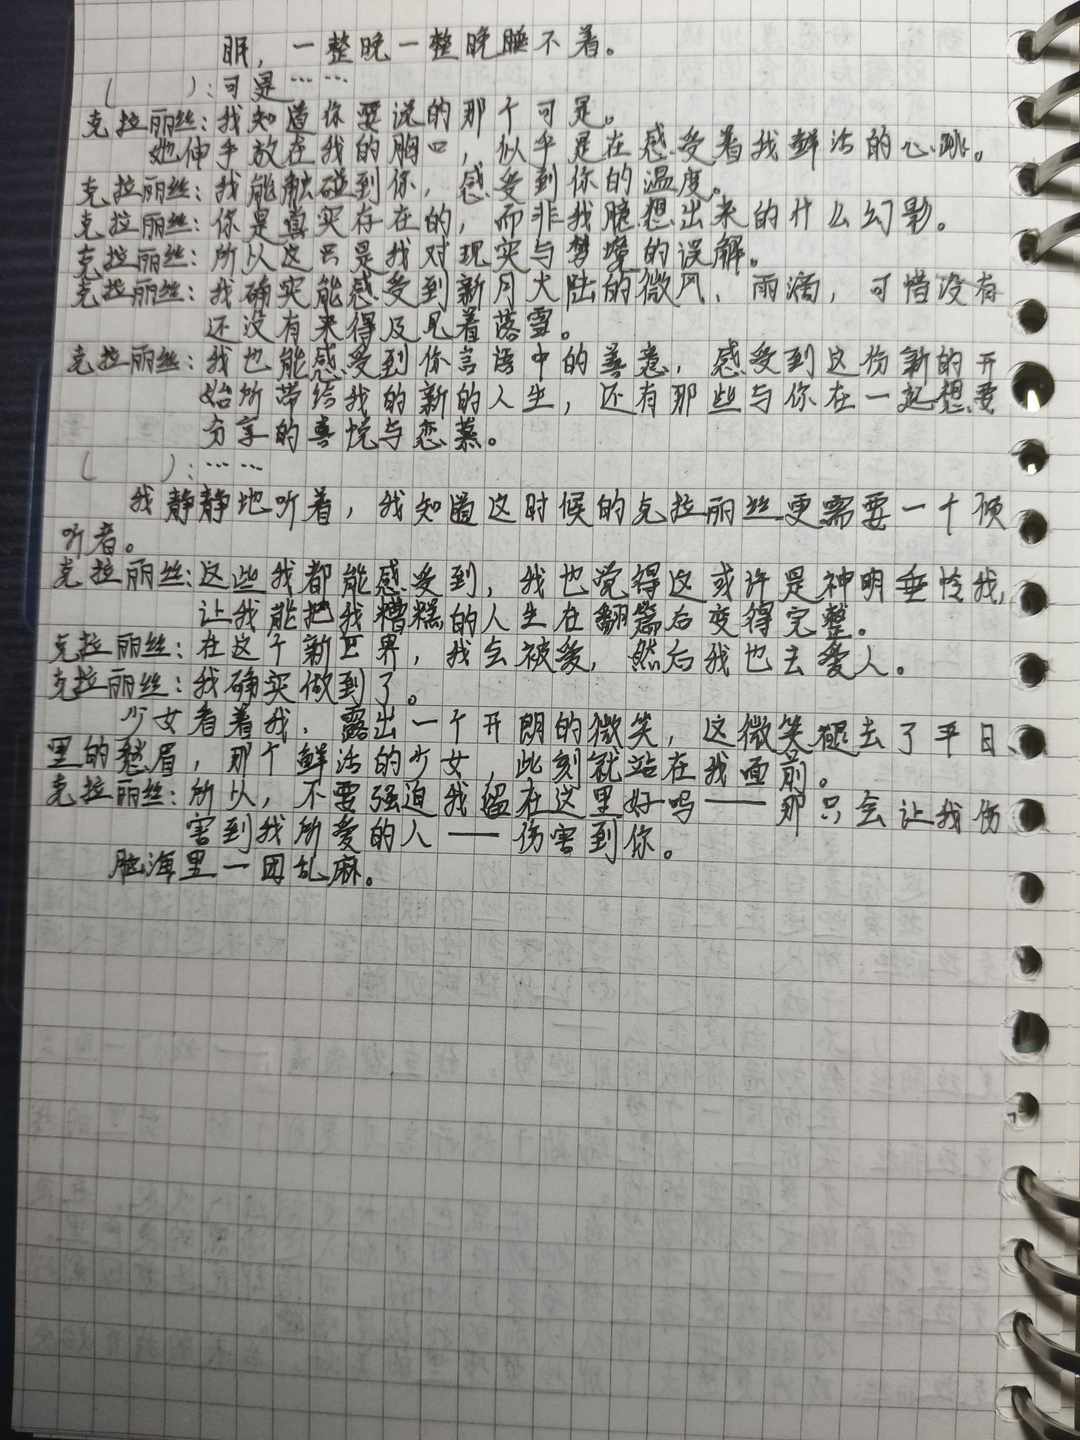 眠，一整晚一整晚睡不着。
(    )：可是……
克拉丽丝：我知道你要说的那个可是。
她伸手放在我的胸口，似乎是在感受着我鲜活的心跳。
克拉丽丝：我能触碰到你，感受到你的温度。
克拉丽丝：你是真实存在的，而非我臆想出来的什么幻影。
克拉丽丝：所以这只是我对现实与梦境的误解。
克拉丽丝：我确实能感受到新月大陆的微风、雨滴，可惜没有
还没有来得及见着落雪。
克拉丽丝：我也能感受到你言语中的善意，感受到这份新的开
始所带给我的新的人生，还有那些与你在一起想要
分享的喜悦与恋慕。
(    )：……
我静静地听着，我知道这时候的克拉丽丝更需要一个倾
听者。
克拉丽丝：这些我都能感受到，我也觉得这或许是神明垂怜我，
让我能把我糟糕的人生在翻篇后变得完整。
克拉丽丝：在这个新世界，我会被爱，然后我也去爱人。
克拉丽丝：我确实做到了。
少女看着我，露出一个开朗的微笑，这微笑褪去了平日
里的愁眉，那个鲜活的少女，此刻就站在我面前。
克拉丽丝：所以，不要强迫我留在这里好吗——那只会让我伤
害到我所爱的人——伤害到你。
脑海里一团乱麻。